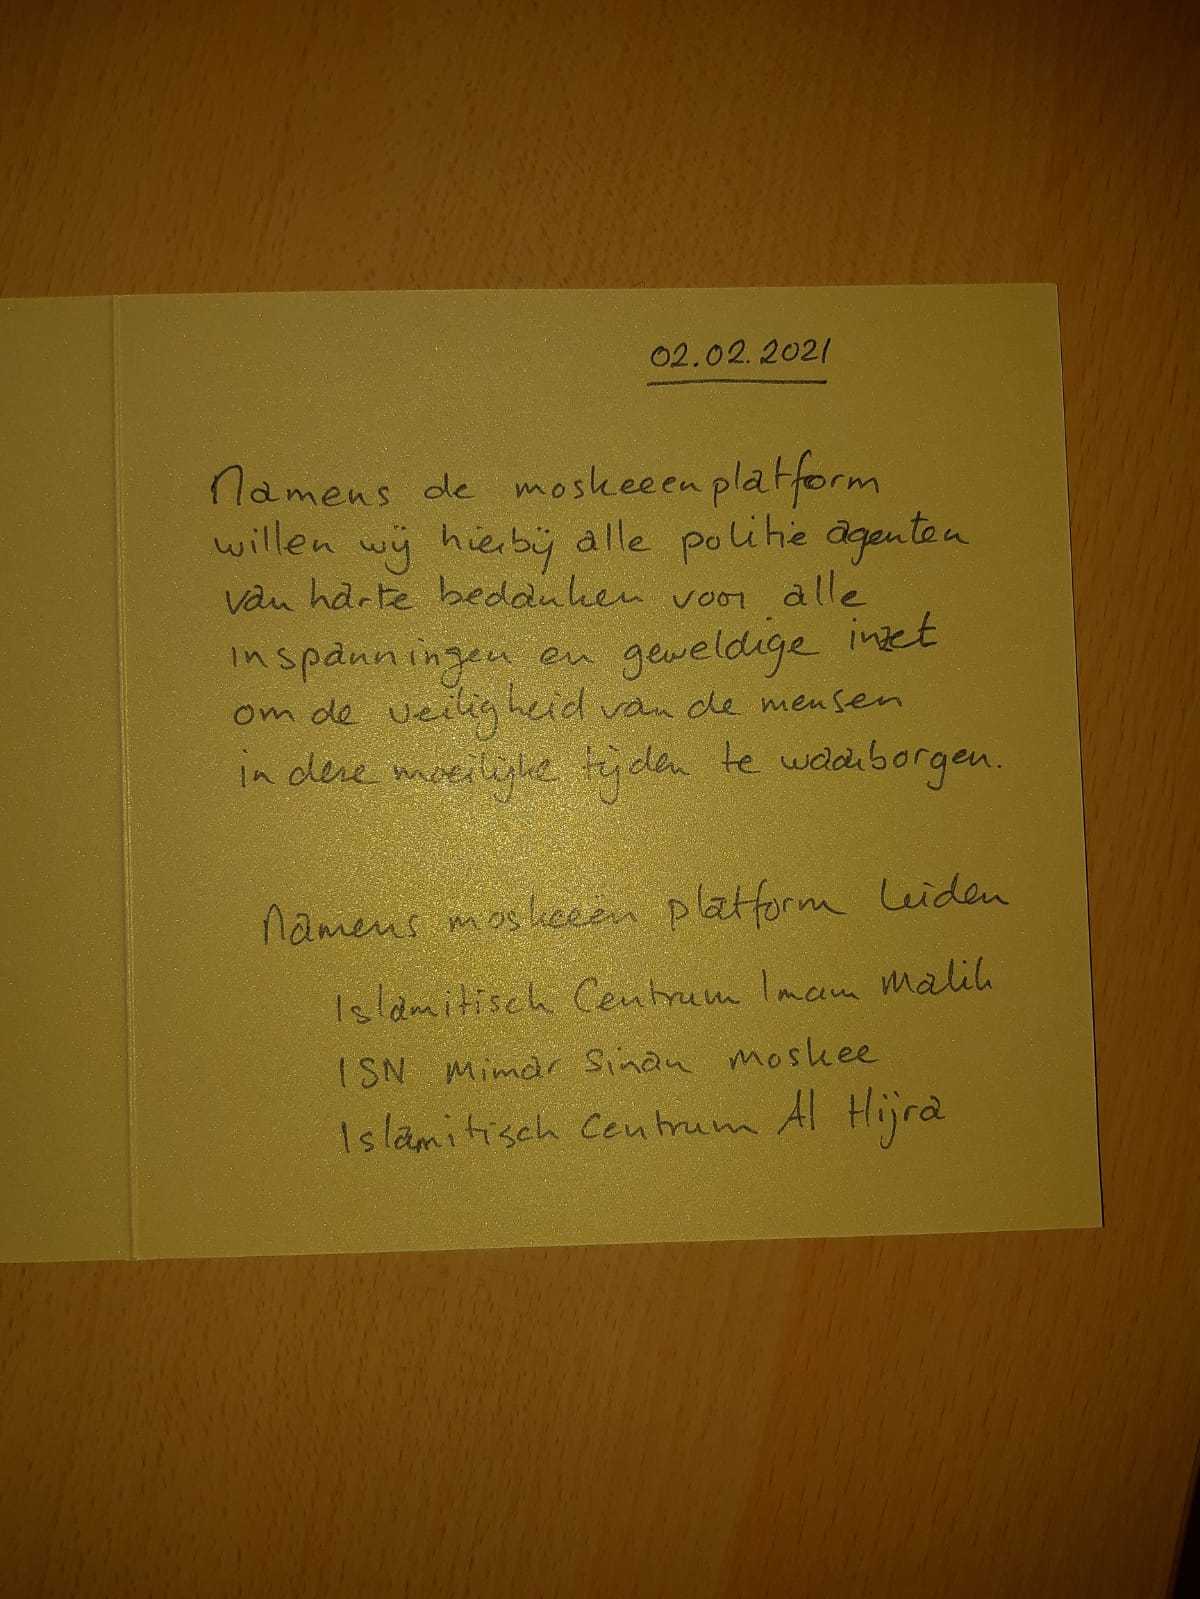 02.02.2021
Namens de moskeeenplatform
willen wij hierbij alle politie agenten
van harte bedanken voor alle
inspanningen en geweldige inzet
om de veiligheid van de mensen
in deze moeilijke tijden te waarborgen.
Namens moskeeën platform Leiden
Islamitisch Centrum Imam Malik
ISN Mimar Sinan Moskee
Islamitisch Centrum Al Hijra